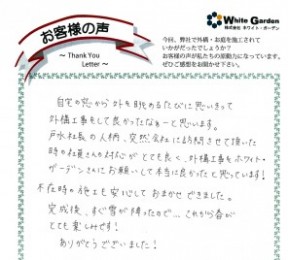 お客様の声
～ Thank You
Letter ～
White Garden
株式会社 ホワイト・ガーデン
今回、弊社で外構・お庭を施工されて
いかがだったでしょうか？
お客様の声が私たちの原動力になっています。
ぜひご感想をお聞かせ下さい。
自宅の窓から外を眺めるたびに思いきって
外構工事をして良かったなぁーと思います。
戸水社長の人柄、突然会社に訪問させて頂いた
時の社員さんの対応がとても良く、外構工事をホワイト・
ガーデンさんにお願いして本当に良かったと思っています！
不在時の施工も安心しておまかせできました。
完成後、すぐ雪が降ったので…、これから春が
とても楽しみです！
ありがとうございました！